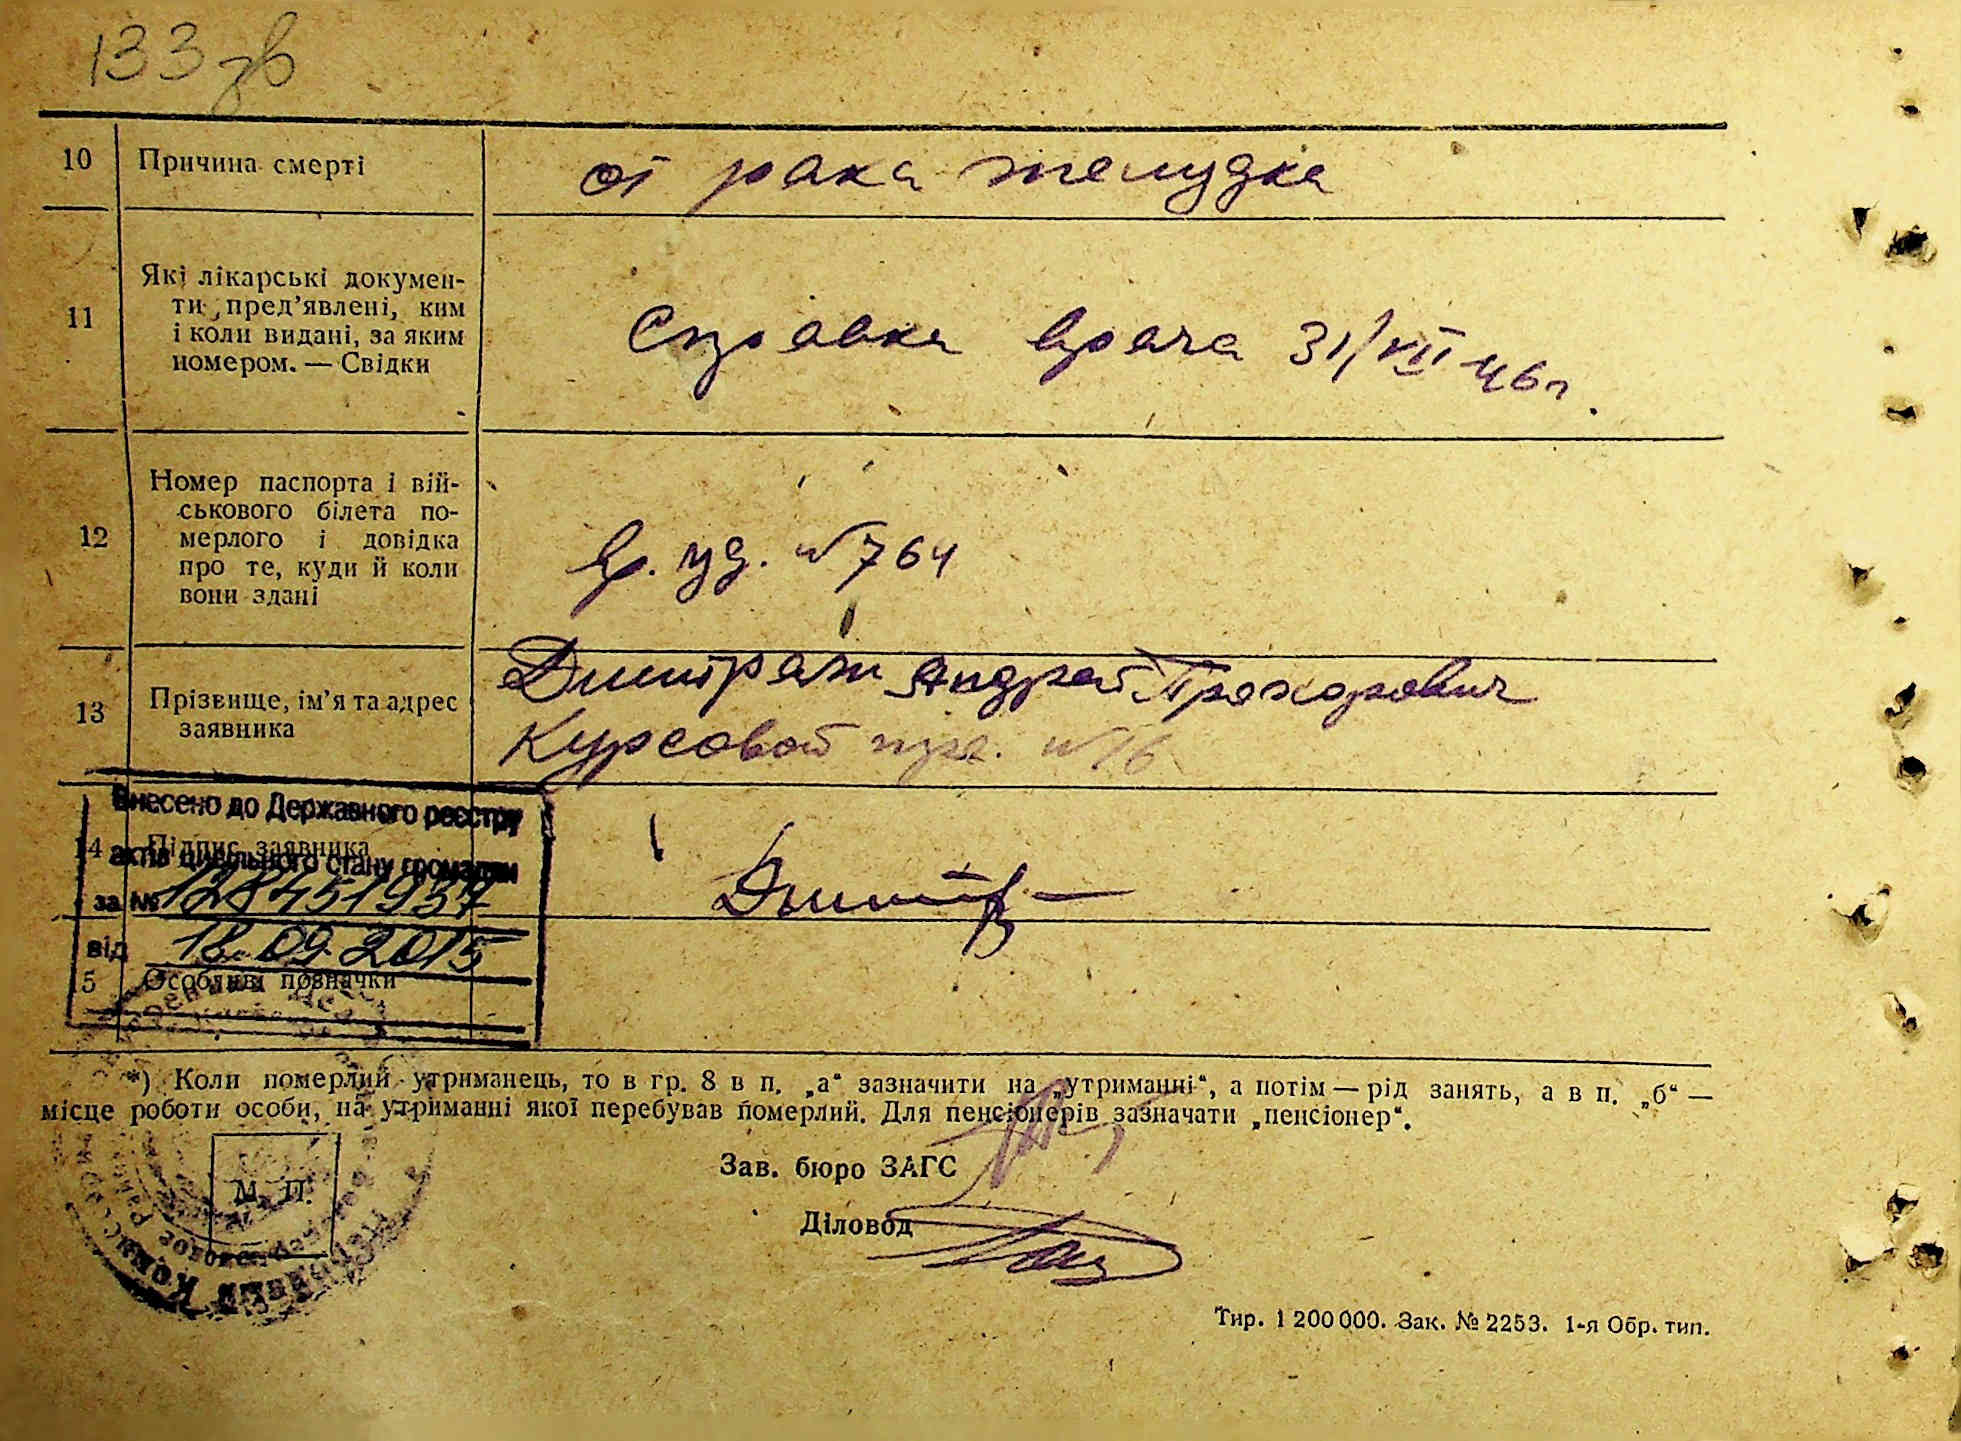 133 зв
10 Причина смерті от рака желудка
11 Які лікарські докумен-
ти пред’явлені, ким
і коли видані, за яким
номером. — Свідки
Справка врача 31/VII 46 г.
12 Номер паспорта і вій-
ськового білета по-
мерлого і довідка
про те, куди й коли
вони здані
вр. уд. № 764
13 Прізвище, ім’я та адрес
заявника
Андрей Прохорович
Курсовой пре. № 16
Внесено до Державного реєстру
14 Підпис заявника
актів цивільного стану громадян
за №
від 18.09.2015
15 Особливі позначки
*) Коли померлий утриманець, то в гр. 8 в п. „а“ зазначити на „утриманні“, а потім — рід занять, а в п. „б“ —
місце роботи особи, на утриманні якої перебував померлий. Для пенсіонерів зазначати „пенсіонер“.
М. П.
Зав. бюро ЗАГС
Діловод
Тир. 1 200 000. Зак. № 2253. 1-я Обр. тип.